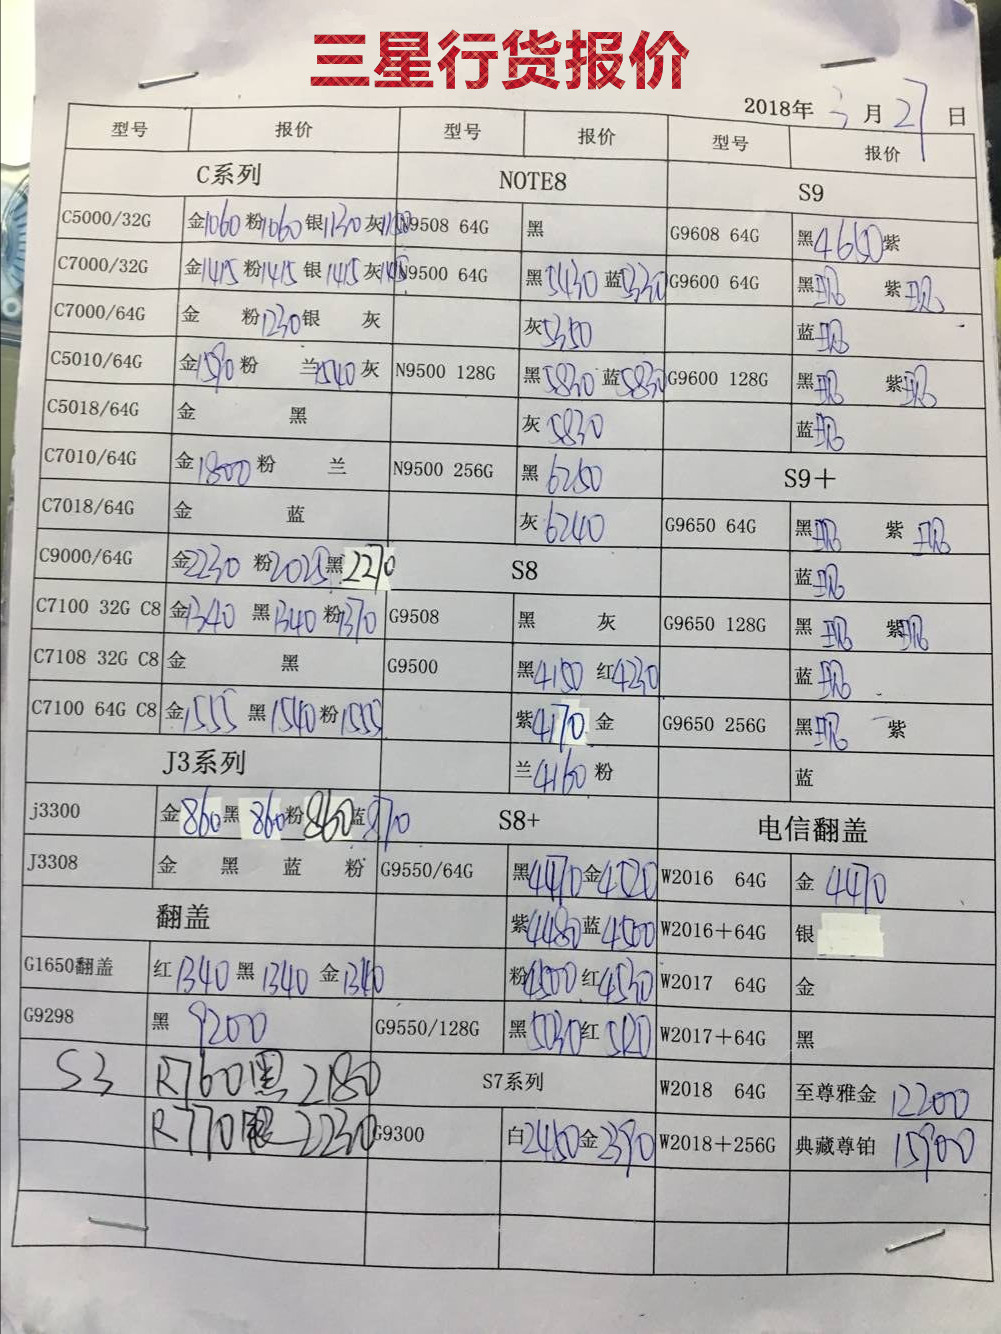 三星行货报价
2018年 3 月 27 日
型号 报价 型号 报价 型号 报价
C系列 NOTE8 S9
C5000/32G 金1060 粉1060 银1130 灰 N9508 64G 黑 G9608 64G 黑4650 紫
C7000/32G 金1415 粉1415 银1415 灰 N9500 64G 黑5430 蓝5330 G9600 64G 黑现 紫现
C7000/64G 金 粉1230 银 灰 灰5350 蓝现
C5010/64G 金1590 粉 兰1540 灰 N9500 128G 黑5830 蓝5830 G9600 128G 黑现 紫现
C5018/64G 金 黑 灰5830 蓝现
C7010/64G 金1800 粉 兰 N9500 256G 黑6250 S9+
C7018/64G 金 蓝 灰6240 G9650 64G 黑现 紫现
C9000/64G 金2230 粉2025 黑2270 S8 蓝现
C7100 32G C8 金1340 黑1340 粉1370 G9508 黑 灰 G9650 128G 黑现 紫现
C7108 32G C8 金 黑 G9500 黑4150 红4230 蓝现
C7100 64G C8 金1555 黑1540 粉1555 紫4170 金 G9650 256G 黑现 紫
J3系列 兰4160 粉 蓝
j3300 金860 黑860 粉860 蓝970 S8+ 电信翻盖
J3308 金 黑 蓝 粉 G9550/64G 黑4470 金4520 W2016 64G 金4470
翻盖 紫4480 蓝4500 W2016+64G 银
G1650翻盖 红1340 黑1340 金1340 粉4500 红4530 W2017 64G 金
G9298 黑9200 G9550/128G 黑5030 红5120 W2017+64G 黑
S3 R760黑 2180 S7系列 W2018 64G 至尊雅金 12200
R770银 2230 G9300 白2450 金2390 W2018+256G 典藏尊铂 15900